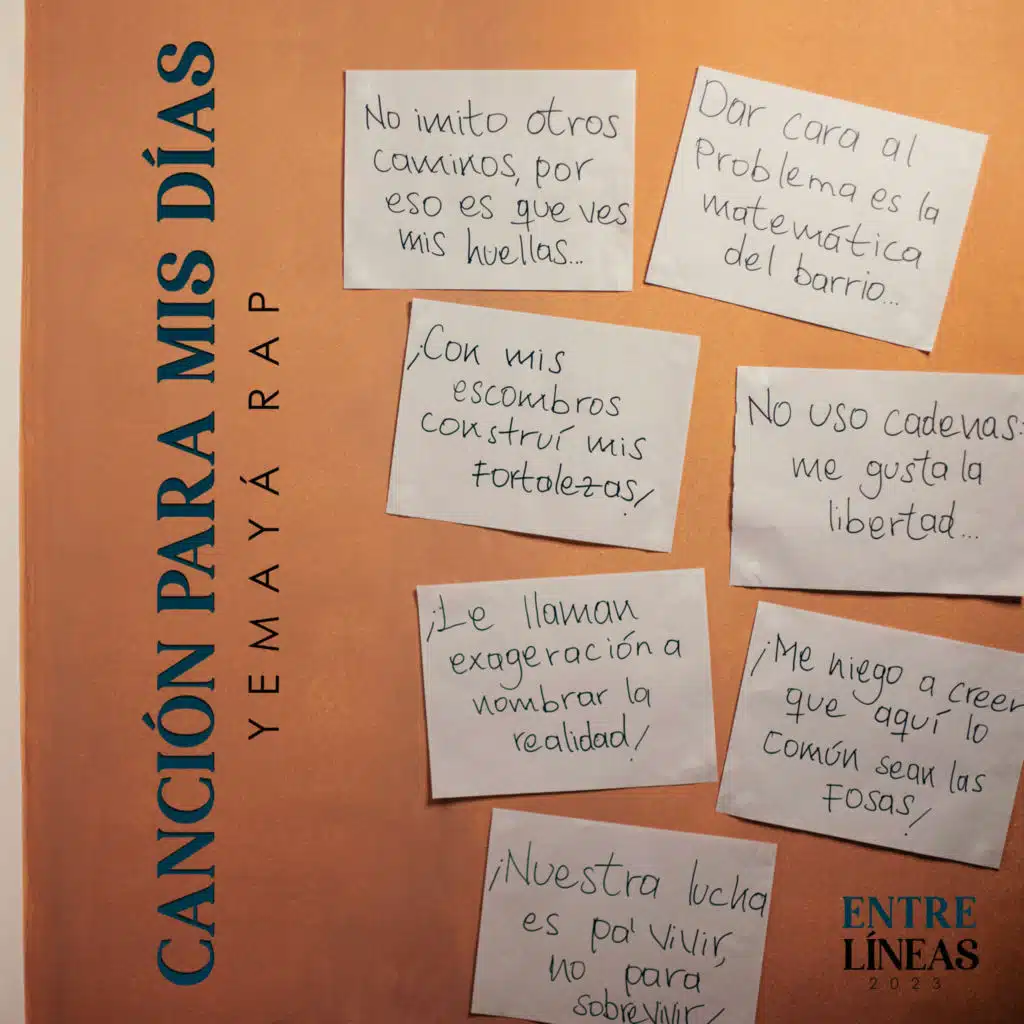 CANCIÓN PARA MIS DÍAS
YEMAYÁ RAP
No imito otros
caminos, por
eso es que ves
mis huellas...
Dar cara al
Problema es la
matemática
del barrio...
¡Con mis
escombros
construí mis
Fortalezas!
No uso cadenas:
me gusta la
libertad...
¡Le llaman
exageración a
nombrar la
realidad!
¡Me niego a creer
que aquí lo
común sean las
Fosas!
¡Nuestra lucha
es pa' vivir,
no para
sobrevivir!
ENTRE
LÍNEAS
2023